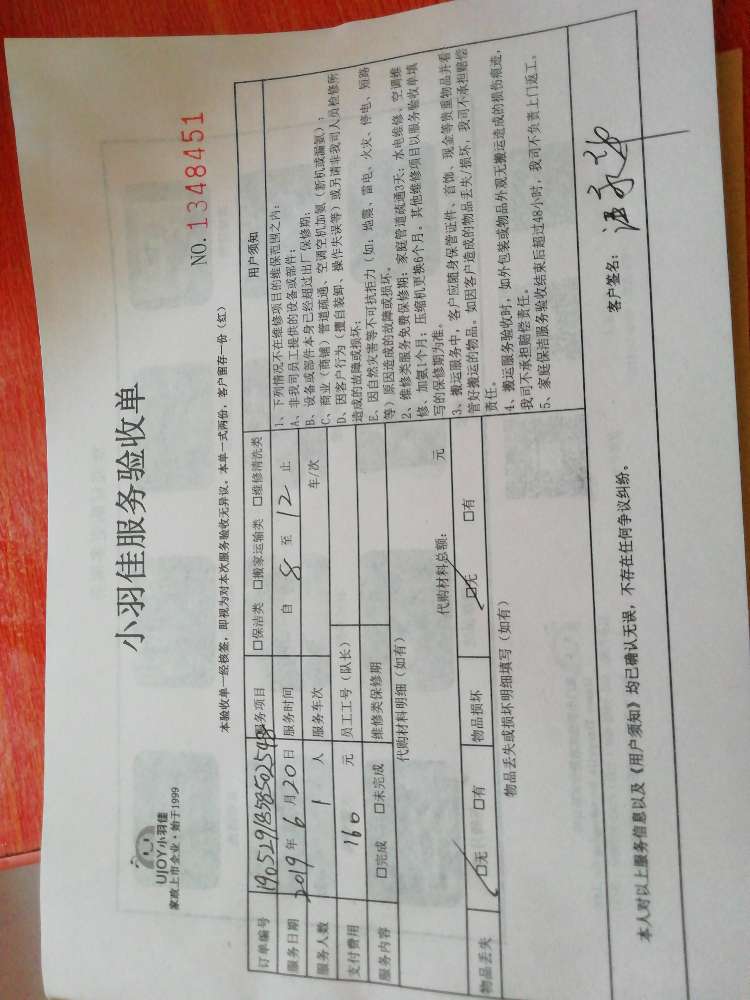 UJOY小羽佳
家政上市企业·始于1999
小羽佳服务验收单
NO. 1348451
本验收单一经核签，即视为对本次服务验收无异议。本单一式两份，客户留存一份（红）
订单编号 服务项目 □保洁类 □搬家运输类 □维修清洗类
服务日期 2019 年 6 月 20 日 服务时间 自 8 至 12 止
服务人数 1 人 服务车次 车/次
支付费用 160 元 员工工号（队长）
服务内容 □完成 □未完成 维修类保修期
代购材料明细（如有）
代购材料总额： 元
物品丢失 □无 □有 物品损坏 □无 □有
物品丢失或损坏明细填写（如有）
用户须知
1、下列情况不在维修项目的维保范围之内：
A、非我司员工提供的设备或部件；
B、设备或部件本身已经超过出厂保修期；
C、商业（商铺）管道疏通、空调空机加氨（新机或漏氨）；
D、因客户行为（擅自装卸、操作失误等）或另请非我司人员检修所
造成的故障或损坏；
E、因自然灾害等不可抗拒力（如：地震、雷电、火灾、停电、短路
等）原因造成的故障或损坏。
2、维修类服务免费保修期：家庭管道疏通3天；水电维修、空调维
修、加氨1个月；压缩机更换6个月。其他维修项目以服务验收单填
写的保修期为准。
3、搬运服务中，客户应随身保管证件、首饰、现金等贵重物品并看
管好搬运的物品。如因客户造成的物品丢失/损坏，我司不承担赔偿
责任。
4、搬运服务验收时，如外包装或物品外观无搬运造成的损伤痕迹，
我司不承担赔偿责任。
5、家庭保洁服务验收结束后超过48小时，我司不负责上门返工。
本人对以上服务信息以及《用户须知》均已确认无误，不存在任何争议纠纷。
客户签名：